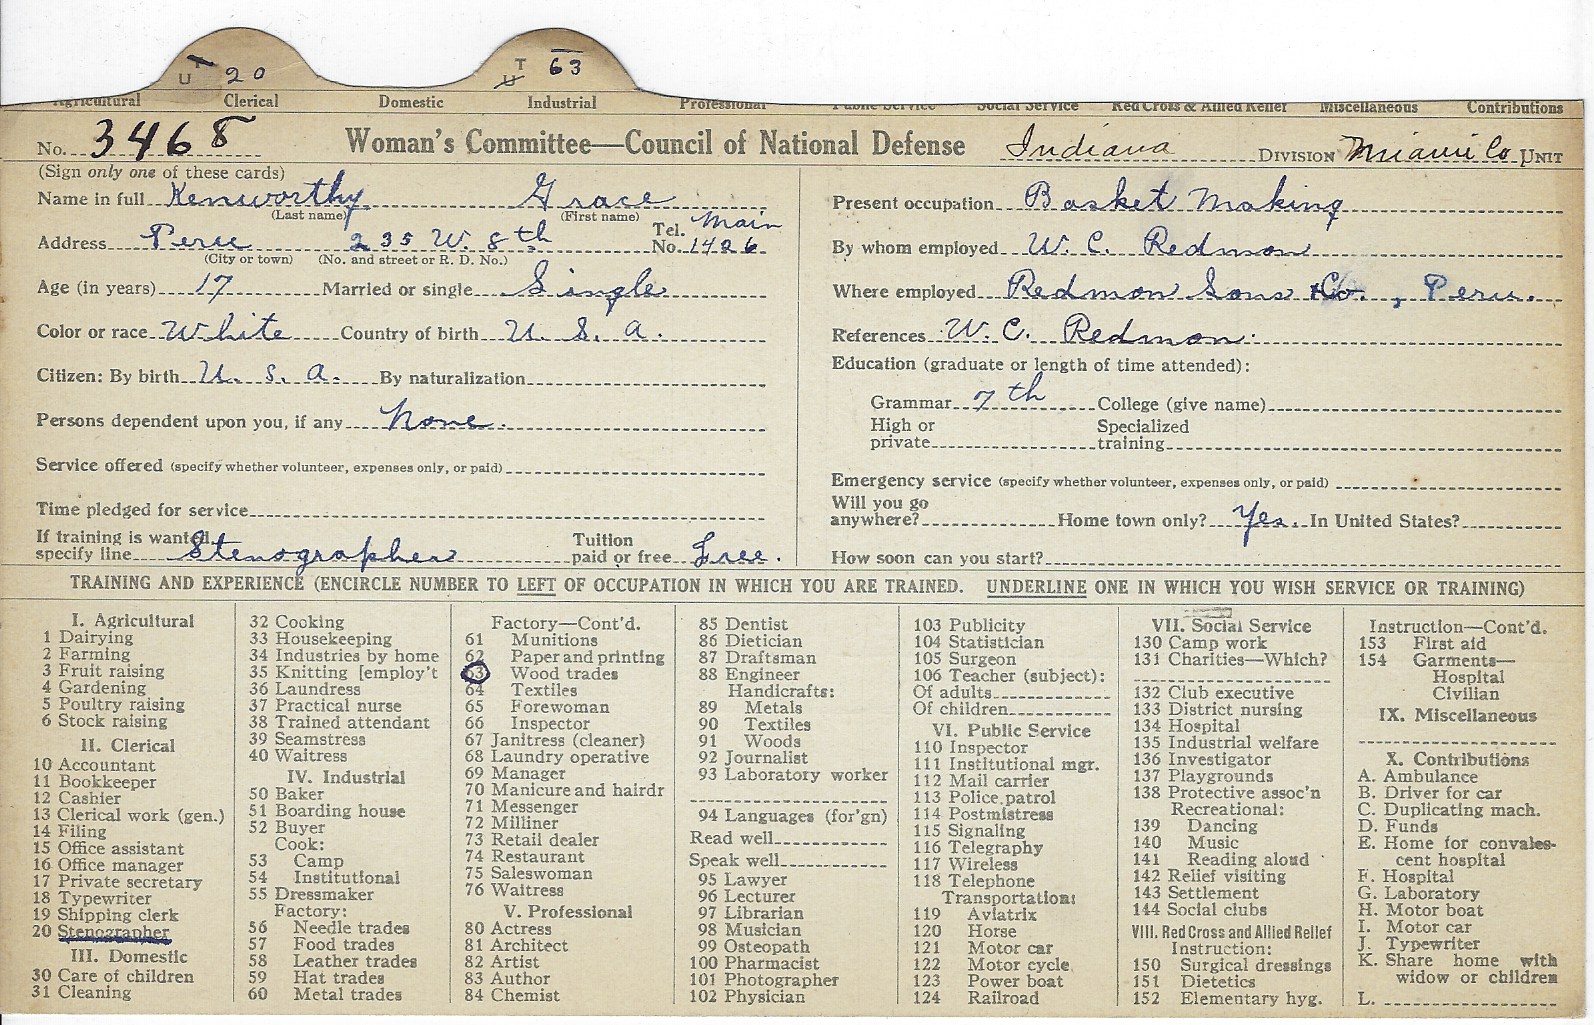 U T 20
T U 63
Agricultural Clerical Domestic Industrial Professional Public Service Social Service Red Cross & Allied Relief Miscellaneous Contributions
No. 3468 Woman's Committee—Council of National Defense Indiana DIVISION Miami Co. UNIT
(Sign only one of these cards)
Name in full Kenworthy Grace
(Last name) (First name)
Address Peru 235 W. 8th Tel. No. Main 1426
(City or town) (No. and street or R. D. No.)
Age (in years) 17 Married or single Single
Color or race White Country of birth U. S. A.
Citizen: By birth U. S. A. By naturalization
Persons dependent upon you, if any None.
Service offered (specify whether volunteer, expenses only, or paid)
Time pledged for service
If training is wanted, specify line Stenographer Tuition paid or free Free.
Present occupation Basket Making
By whom employed W. C. Redmon
Where employed Redmon Sons & Co., Peru.
References W. C. Redmon.
Education (graduate or length of time attended):
Grammar 7th College (give name)
High or private Specialized training
Emergency service (specify whether volunteer, expenses only, or paid)
Will you go anywhere? Home town only? Yes. In United States?
How soon can you start?
TRAINING AND EXPERIENCE (ENCIRCLE NUMBER TO LEFT OF OCCUPATION IN WHICH YOU ARE TRAINED. UNDERLINE ONE IN WHICH YOU WISH SERVICE OR TRAINING)
I. Agricultural
1 Dairying
2 Farming
3 Fruit raising
4 Gardening
5 Poultry raising
6 Stock raising
II. Clerical
10 Accountant
11 Bookkeeper
12 Cashier
13 Clerical work (gen.)
14 Filing
15 Office assistant
16 Office manager
17 Private secretary
18 Typewriter
19 Shipping clerk
20 Stenographer
III. Domestic
30 Care of children
31 Cleaning
32 Cooking
33 Housekeeping
34 Industries by home
35 Knitting [employ't
36 Laundress
37 Practical nurse
38 Trained attendant
39 Seamstress
40 Waitress
IV. Industrial
50 Baker
51 Boarding house
52 Buyer
Cook:
53 Camp
54 Institutional
55 Dressmaker
Factory:
56 Needle trades
57 Food trades
58 Leather trades
59 Hat trades
60 Metal trades
Factory—Cont'd.
61 Munitions
62 Paper and printing
63 Wood trades
64 Textiles
65 Forewoman
66 Inspector
67 Janitress (cleaner)
68 Laundry operative
69 Manager
70 Manicure and hairdr
71 Messenger
72 Milliner
73 Retail dealer
74 Restaurant
75 Saleswoman
76 Waitress
V. Professional
80 Actress
81 Architect
82 Artist
83 Author
84 Chemist
85 Dentist
86 Dietician
87 Draftsman
88 Engineer
Handicrafts:
89 Metals
90 Textiles
91 Woods
92 Journalist
93 Laboratory worker
94 Languages (for'gn)
Read well
Speak well
95 Lawyer
96 Lecturer
97 Librarian
98 Musician
99 Osteopath
100 Pharmacist
101 Photographer
102 Physician
103 Publicity
104 Statistician
105 Surgeon
106 Teacher (subject):
Of adults
Of children
VI. Public Service
110 Inspector
111 Institutional mgr.
112 Mail carrier
113 Police patrol
114 Postmistress
115 Signaling
116 Telegraphy
117 Wireless
118 Telephone
Transportation:
119 Aviatrix
120 Horse
121 Motor car
122 Motor cycle
123 Power boat
124 Railroad
VII. Social Service
130 Camp work
131 Charities—Which?
132 Club executive
133 District nursing
134 Hospital
135 Industrial welfare
136 Investigator
137 Playgrounds
138 Protective assoc'n
Recreational:
139 Dancing
140 Music
141 Reading aloud
142 Relief visiting
143 Settlement
144 Social clubs
VIII. Red Cross and Allied Relief
Instruction:
150 Surgical dressings
151 Dietetics
152 Elementary hyg.
Instruction—Cont'd.
153 First aid
154 Garments—
Hospital
Civilian
IX. Miscellaneous
X. Contributions
A. Ambulance
B. Driver for car
C. Duplicating mach.
D. Funds
E. Home for convales-
cent hospital
F. Hospital
G. Laboratory
H. Motor boat
I. Motor car
J. Typewriter
K. Share home with
widow or children
L.